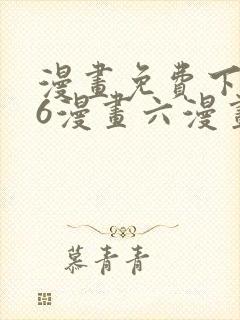 漫畫免費下
6漫畫六漫畫
慕青青